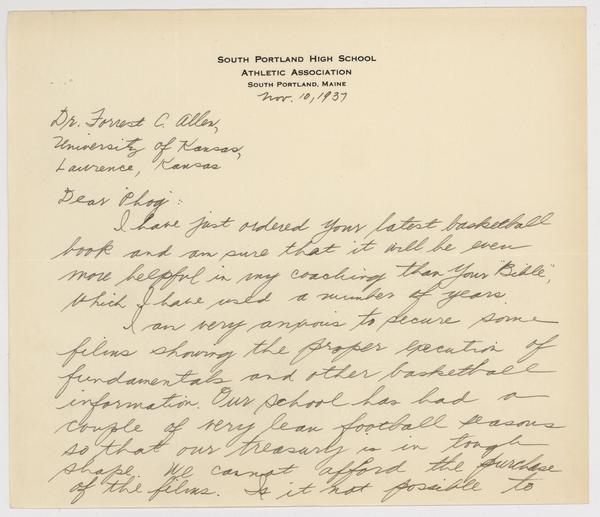 South Portland High School
Athletic Association
South Portland, Maine
Nov. 10, 1937
Dr. Forrest C. Allen,
University of Kansas,
Lawrence, Kansas
Dear "Phog":
I have just ordered your latest basketball
book and am sure that it will be even
more helpful in my coaching than your "Bible",
which I have used a number of years.
I am very anxious to secure some
films showing the proper execution of
fundamentals and other basketball
information. Our school has had a
couple of very lean football seasons
so that our treasury is in tough
shape. We cannot afford the purchase
of the films. Is it not possible to